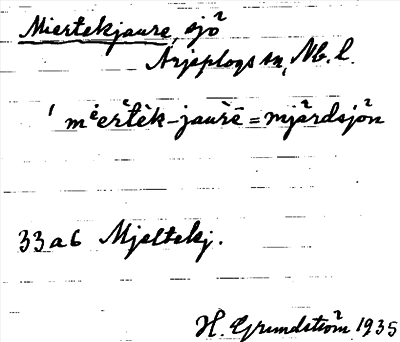 Miertekjaure, sjö
Arjeplogs sn, Nb. l.
' mi̊erte̊k-jaurē = mjärdsjön
33 a 6 Mjeltekj.
H. Grundström 1935